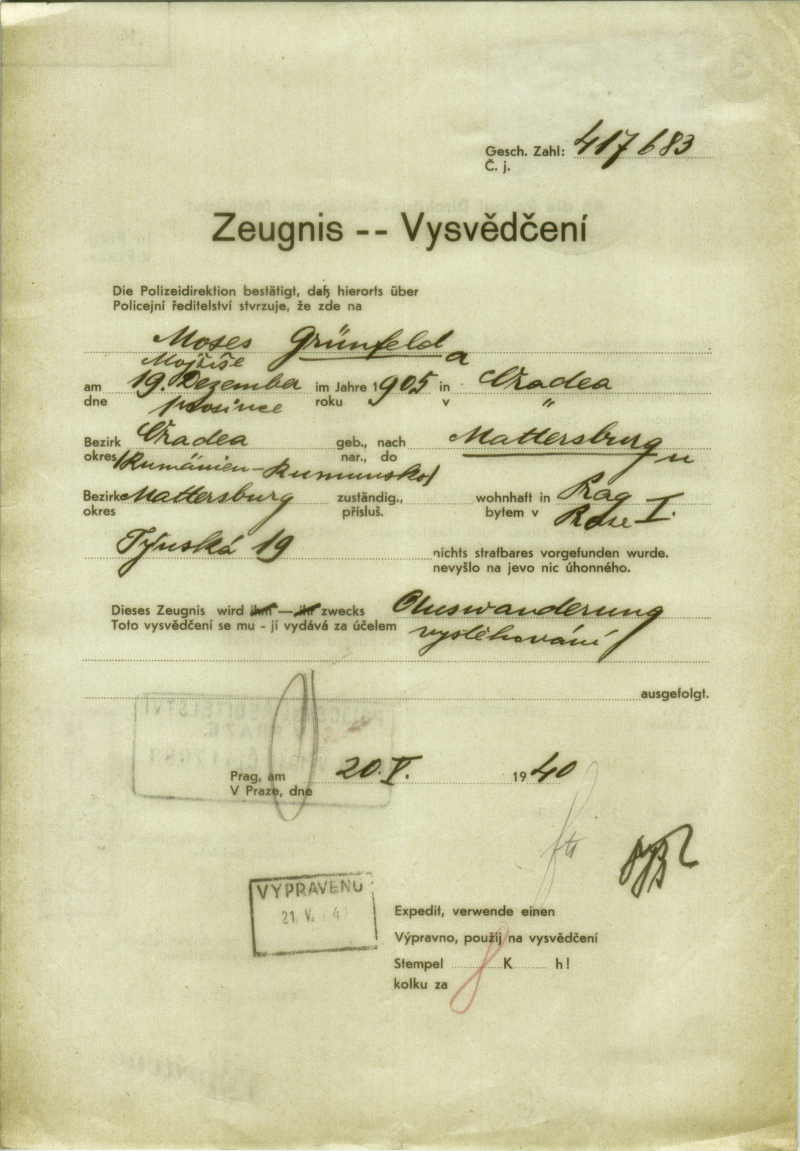 Gesch. Zahl: 417683
Č. j.
Zeugnis -- Vysvědčení
Die Polizeidirektion bestätigt, daß hierorts über
Policejní ředitelství stvrzuje, že zde na
Moses Grünfeld a
Mojžíše
am 19. Dezember im Jahre 1905 in Oradea
dne prosince roku v "
Bezirk Oradea geb., nach Mattersburg
okres (Rumänien-Rumunsko) nar., do u
Bezirke Mattersburg zuständig., wohnhaft in Prag
okres přísluš. bytem v Praze I.
Týnská 19 nichts strafbares vorgefunden wurde.
nevyšlo na jevo nic úhonného.
Dieses Zeugnis wird ihm — ihr zwecks Auswanderung
Toto vysvědčení se mu - jí vydává za účelem vystěhování
ausgefolgt.
Prag, am 20. V. 1940
V Praze, dne
VYPRAVENO
21. V. 4
Expedit, verwende einen
Výpravno, použij na vysvědčení
Stempel K h!
kolku za